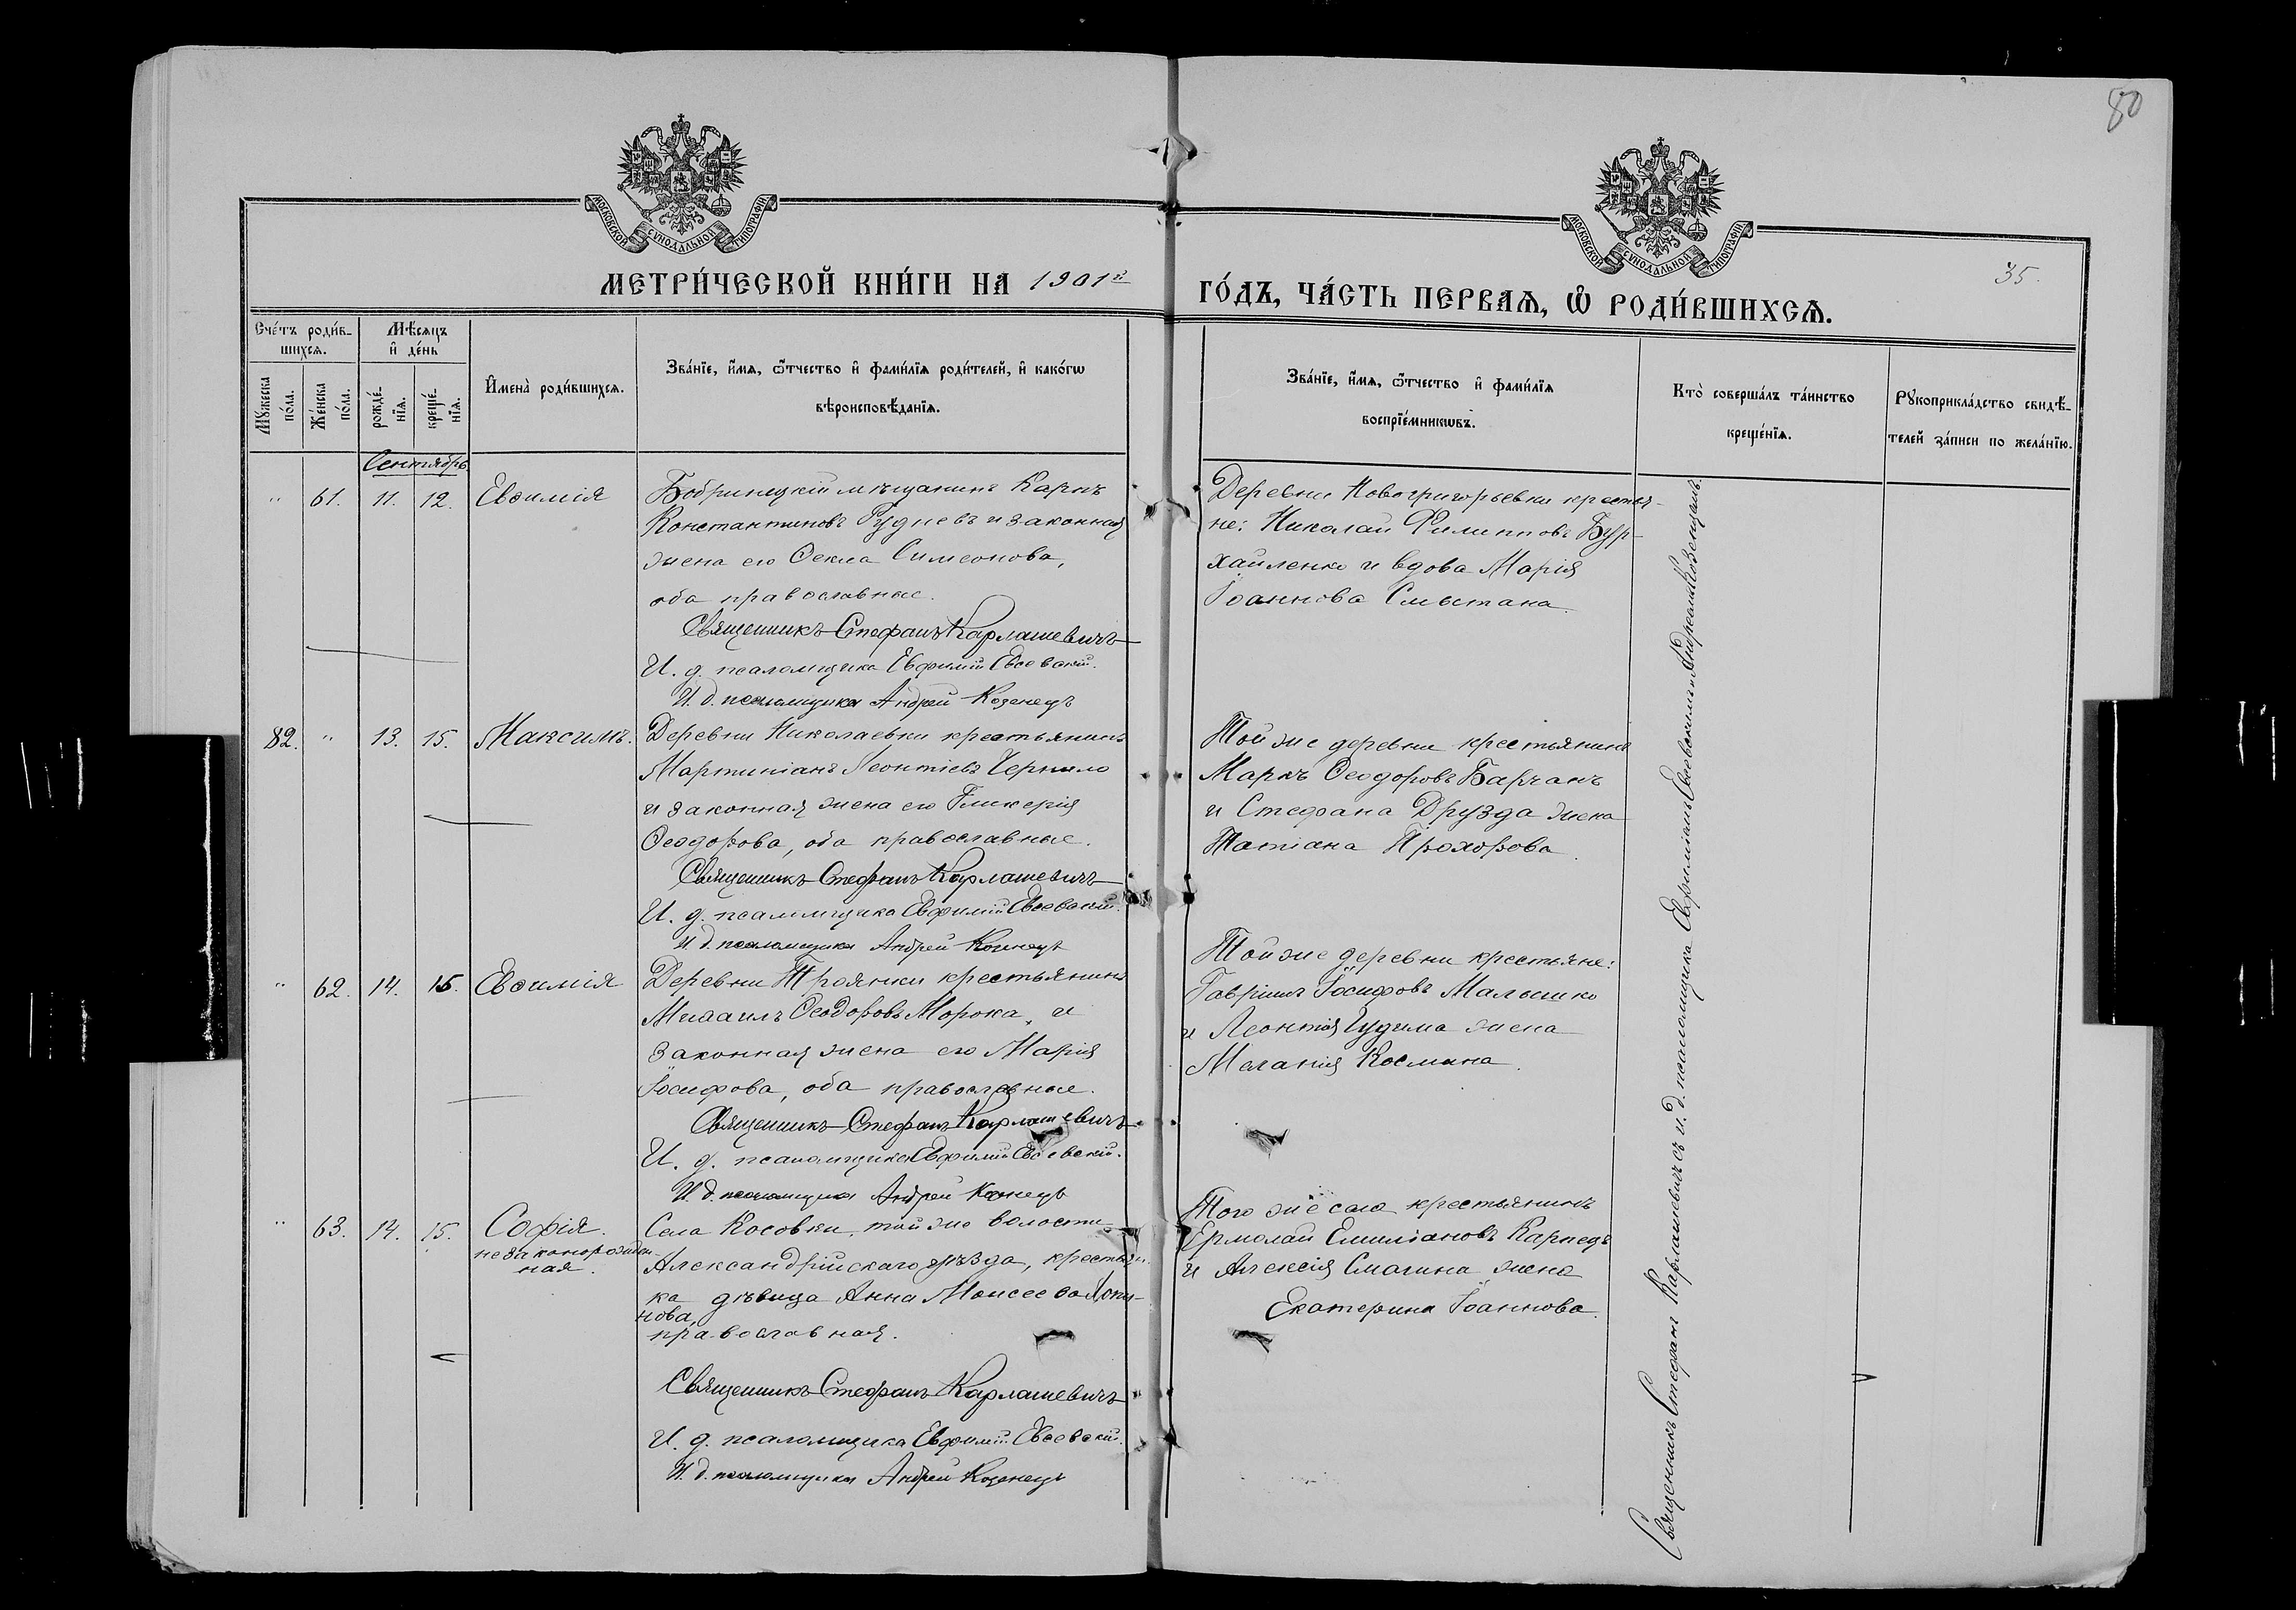 80
МОСКОВСКОЙ СУНОДАЛЬНОЙ ТИПОГРАФІИ
МОСКОВСКОЙ СУНОДАЛЬНОЙ ТИПОГРАФІИ
МЕТРИ́ЧЕСКОЙ КНИ́ГИ НА 1901й
ГО́ДЪ, ЧА́СТЬ ПЕРВАѦ, Ѡ҆ РОДИ́ВШИХСѦ.
35.
Сче́тъ роди́в-
шихсѧ.
Мѣ́сѧцъ
и҆ де́нь
Мꙋ́жеска
по́ла.
Же́нска
по́ла.
рожде́-
нїѧ.
креще́-
нїѧ.
И҆мена̀ роди́вшихсѧ.
Зва́нїе, и҆́мѧ, ѻ҆́тчество и҆ фами́лїѧ роди́телей, и҆ како́гѡ
вѣроисповѣ́данїѧ.
Зва́нїе, и҆́мѧ, ѻ҆́тчество и҆ фами́лїѧ
воспрїе́мникѡвъ.
Кто̀ соверша́лъ та́инство
креще́нїѧ.
Рꙋкоприкла́дство свидѣ́-
телей за́писи по жела́нїю.
Сентябрь.
" 61. 11. 12. Евѳимія
Бобринецкій мѣщанинъ Карпъ
Константиновъ Рудневъ и законная
жена его Ѳекла Симеонова,
оба православные.
Священникъ Стефанъ Карлашевичъ
И. д. псаломщика Евфимій Евсевскій.
И. д. псаломщика Андрей Козенецъ
Деревни Новогригорьевки крестья-
не: Николай Филипповъ Бур-
хайленко и вдова Марія
Іоаннова Смытана.
82. " 13. 15. Максимъ.
Деревни Николаевки крестьянинъ
Мартиніанъ Леонтіевъ Чернило
и законная жена его Гликерія
Ѳеодорова, оба православные.
Священникъ Стефанъ Карлашевичъ
И. д. псаломщика Евфимій Евсевскій.
И. д. псаломщика Андрей Козенецъ
Той же деревни крестьянинъ
Маркъ Ѳеодоровъ Барчанъ
и Стефана Друзда жена
Татіана Прохорова.
" 62. 14. 15. Евѳимія
Деревни Троянки крестьянинъ
Михаилъ Ѳеодоровъ Морока, и
законная жена его Марія
Іосифова, оба православные.
Священникъ Стефанъ Карлашевичъ
И. д. псаломщика Евфимій Евсевскій.
И. д. псаломщика Андрей Козенецъ
Той же деревни крестьяне:
Гавріилъ Іосифовъ Малышко
и Леонтія Гудима жена
Меланія Космина.
" 63. 14. 15. Софія.
незаконорожден-
ная.
Села Косовки, той же волости
Александрійскаго уѣзда, крестьян-
ка дѣвица Анна Моисеева
нова,
православная.
Священникъ Стефанъ Карлашевичъ
И. д. псаломщика Евфимій Евсевскій.
И. д. псаломщика Андрей Козенецъ
Того же села крестьянинъ
Ермолай Емиліановъ Карпецъ
и Алексія Смагина жена
Екатерина Іоаннова.
Священникъ Стефанъ Карлашевичъ съ и. д. псаломщика Евфиміемъ Евсевскимъ и Андреемъ Козенцемъ.